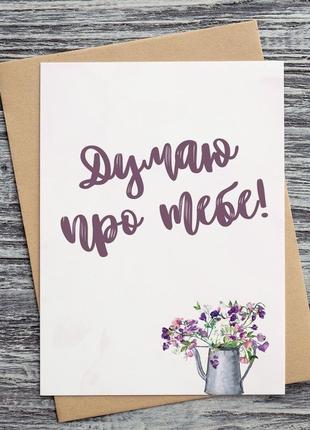 Думаю
про тебе!